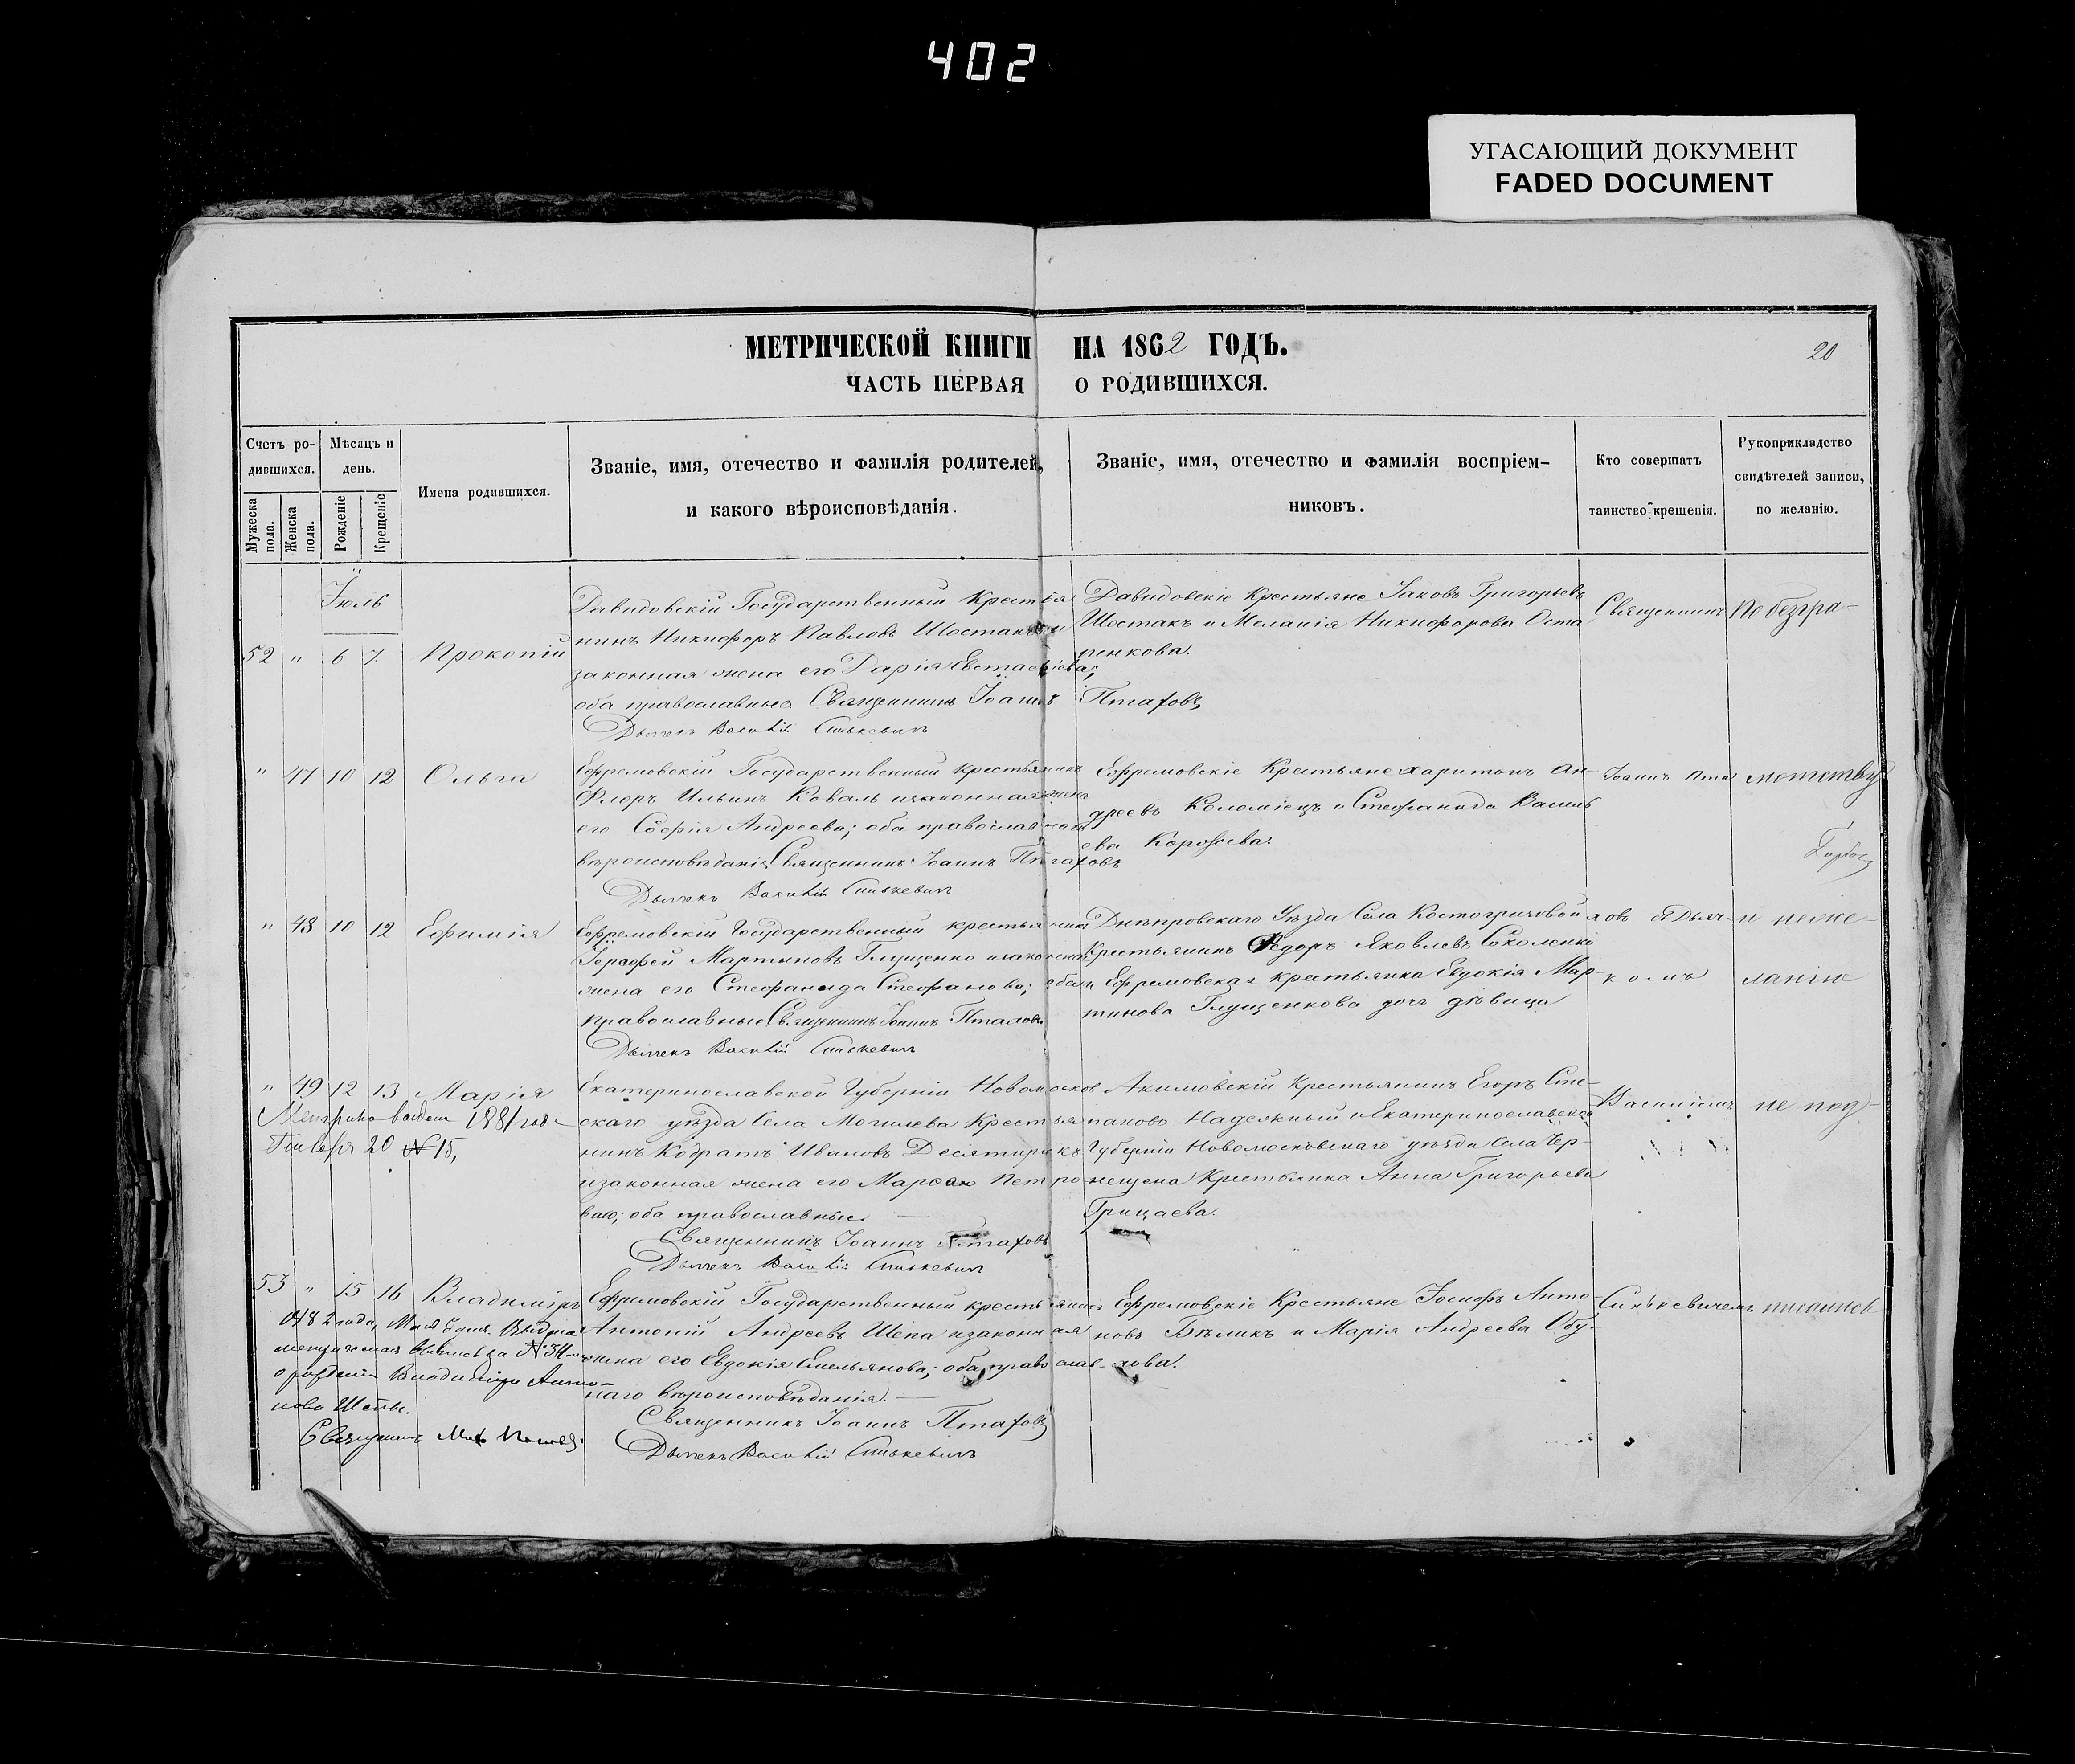 402
УГАСАЮЩИЙ ДОКУМЕНТ
FADED DOCUMENT
МЕТРИЧЕСКОЙ КНИГИ НА 1862 ГОДЪ.
20
ЧАСТЬ ПЕРВАЯ О РОДИВШИХСЯ.
Счетъ ро-
дившихся.
Мужеска пола.
Женска пола.
Мѣсяцъ и
день.
Рожденіе
Крещеніе
Имена родившихся.
Званіе, имя, отечество и фамилія родителей,
и какого вѣроисповѣданія.
Званіе, имя, отечество и фамилія воспріем-
никовъ.
Кто совершатъ
таинство крещенія.
Рукоприкладство
свидѣтелей записи,
по желанію.
Іюль
52 " 6 7. Прокопій
Давидовскій Государственный Крестья
нинъ Никифоръ Павловъ Шостакъ и
законная жена его Дарія Евстафіева;
оба православные Священникъ Іоаннъ Птаховъ
Дьячекъ Василій Синькевичъ
Давидовскіе Крестьяне Іаковъ Григорьевъ
Шостакъ и Меланія Никифорова Оста
пенкова.
Священникъ
По безгра-
" 47 10 12 Ольга
Ефремовскій Государственный крестьянинъ
Флоръ Ильинъ Коваль и законная жена
его Софія Андреева; оба православнаго
вѣроисповѣданія Священникъ Іоаннъ Птаховъ
Дьячекъ Василій Синькевичъ
Ефремовскіе Крестьяне Харитонъ Ан-
дреевъ Коломіецъ и Стефанида Василь
ева
Іоаннъ Пта
мотству
" 48 10 12 Ефимія
Ефремовскій Государственный крестьянинъ
Мартыновъ Глущенко и законная
жена его Стефанида Стефанова; оба
православные Священникъ Іоаннъ Птаховъ
Дьячекъ Василій Синькевичъ
Днѣпровскаго Уѣзда Села Костогризовой
Крестьянинъ Федоръ Яковлевъ Соколенко
и Ефремовская крестьянка Евдокія Мар-
тинова Глущенкова дочь дѣвица
ховъ съ Дьяч-
комъ
и неже-
ланію
" 49 12 13 Марія
1881 года
20 № 15,
Екатеринославской Губерніи Новомосков
скаго уѣзда Села Могилева Крестья
нинъ Кодратъ Ивановъ
и законная жена его Петро
ва; оба православные.
Священникъ Іоаннъ Птаховъ
Дьячекъ Василій Синькевичъ
Акимовскій Крестьянинъ Егоръ Сте-
пановъ Надежный и Екатеринославской
Губерніи Новомосковскаго уѣзда Села Чер-
нещена Крестьянка Анна Григорьева
Грицаева.
Василіемъ
не под-
53 " 15 16 Владиміръ
Ефремовскій Государственный крестьянинъ
Антоній Андреевъ Шепа и законная
жена его Евдокія Емельянова; оба православ-
наго вѣроисповѣданія.
Священникъ Іоаннъ Птаховъ
Дьячекъ Василій Синькевичъ
Ефремовскіе Крестьяне Іосифъ Анто-
новъ Бѣликъ и Марія Андреева Обу-
хова.
Синькевичемъ
писались
1882 года,
о рожденіи Владиміра Анто-
нова Шепы.
Священникъ